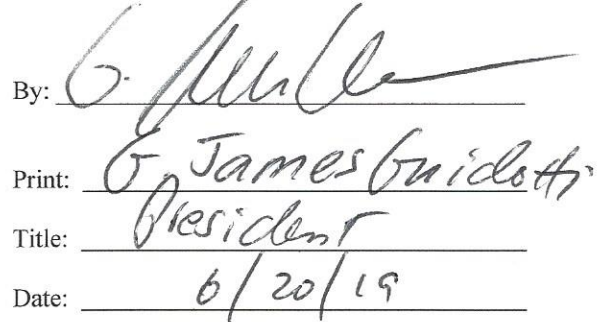 By:
Print: G. James Guidotti
Title: President
Date: 6/20/19